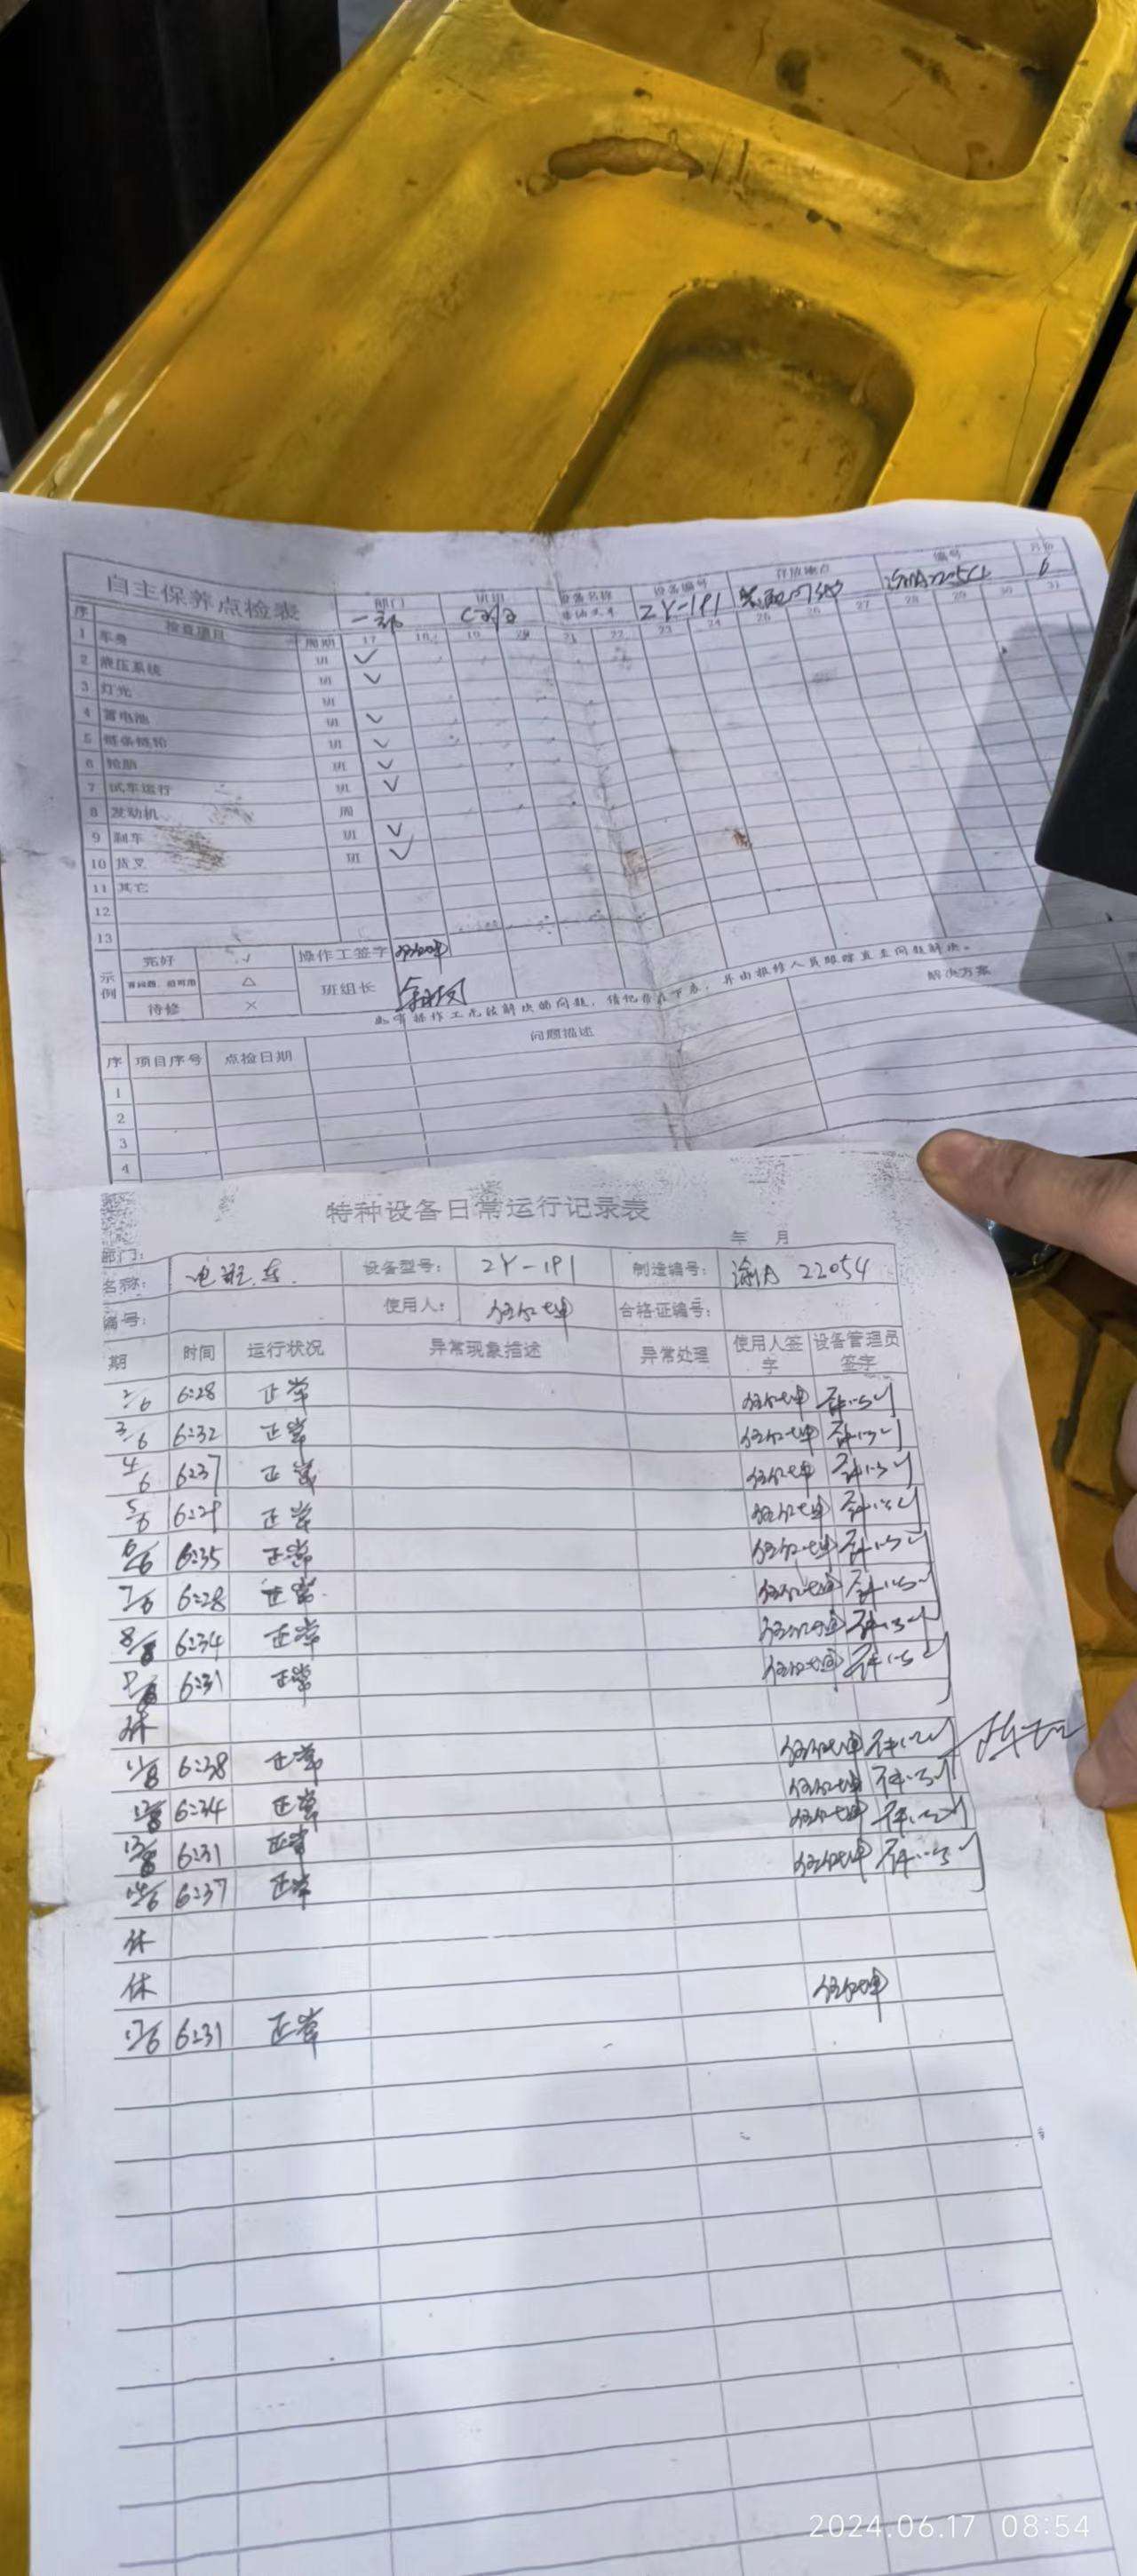 自主保养点检表 部门 班组 设备名称 设备编号 存放地点 编号 月份
一部 ZY-191 6
序 检查项目 周期 17 18 19 20 21 22 23 24 25 26 27 28 29 30 31
1 车身 班 ✓
2 液压系统 班 ✓
3 灯光 班
4 蓄电池 班 ✓
5 链条链轮 班 ✓
6 轮胎 班 ✓
7 试车运行 班 ✓
8 发动机 周
9 刹车 班 ✓
10 货叉 班 ✓
11 其它
12
13
示例 完好 √ 操作工签字
有问题，但可用 △ 班组长
待修 ×
如有操作工无法解决的问题，请记录在下表，并由报修人员跟踪直至问题解决。
序 项目序号 点检日期 问题描述 解决方案
1
2
3
4
特种设备日常运行记录表
年 月
部门：
名称： 设备型号： ZY-191 制造编号： 渝A 22054
编号： 使用人： 合格证编号：
期 时间 运行状况 异常现象描述 异常处理 使用人签字 设备管理员签字
2/6 6:28 正常
3/6 6:32 正常
4/6 6:37 正常
5/6 6:29 正常
6/6 6:35 正常
7/6 6:28 正常
8/6 6:34 正常
9/6 6:31 正常
休
11/6 6:38 正常
12/6 6:34 正常
13/6 6:31 正常
14/6 6:37 正常
休
休
17/6 6:31 正常
2024.06.17 08:54